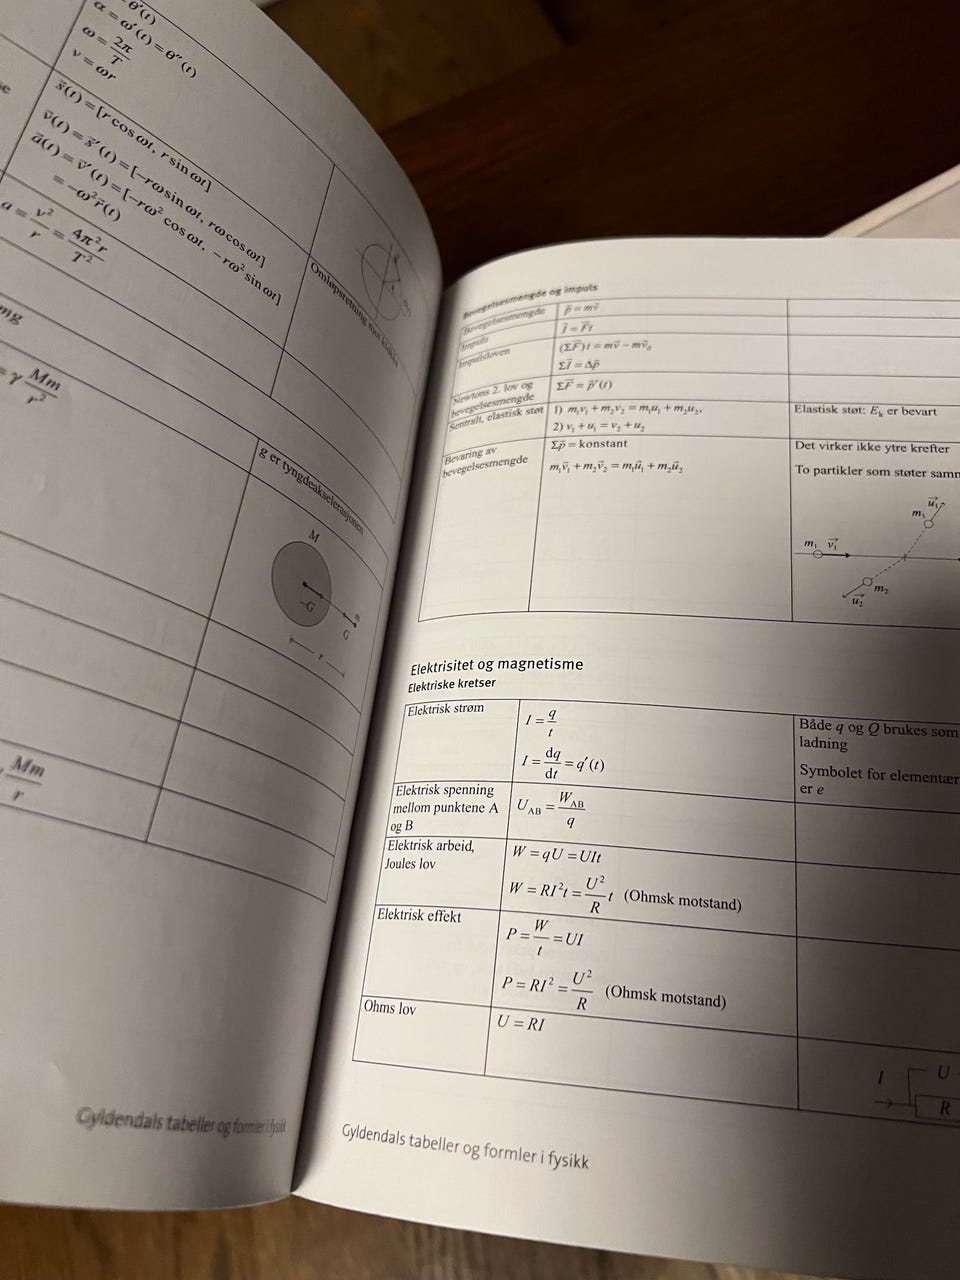 θ′(t)
α = ω′(t) = θ″(t)
ω = 2π/T
v = ωr
s⃗(t) = [r cos ωt, r sin ωt]
v⃗(t) = s⃗′(t) = [−rω sin ωt, rω cos ωt]
a⃗(t) = v⃗′(t) = [−rω² cos ωt, −rω² sin ωt]
= −ω²r⃗(t)
a = v²/r = 4π²r/T²
Omløpsretning mot klokka
mg
= γ Mm/r²
g er tyngdeakselerasjonen
M
−G
G
r
Mm/r
Gyldendals tabeller og formler i fysikk
Bevegelsesmengde og impuls
Bevegelsesmengde p⃗ = mv⃗
Impuls I⃗ = F⃗t
Impulsloven (ΣF⃗)t = mv⃗ − mv⃗₀
ΣI⃗ = Δp⃗
Newtons 2. lov og ΣF⃗ = p⃗′(t)
bevegelsesmengde
Sentralt, elastisk støt 1) m₁v₁ + m₂v₂ = m₁u₁ + m₂u₂, Elastisk støt: Eₖ er bevart
2) v₁ + u₁ = v₂ + u₂
Bevaring av Σp⃗ = konstant Det virker ikke ytre krefter
bevegelsesmengde m₁v⃗₁ + m₂v⃗₂ = m₁u⃗₁ + m₂u⃗₂ To partikler som støter samm
u⃗₁
m₁
m₁ v⃗₁
m₂
u⃗₂
Elektrisitet og magnetisme
Elektriske kretser
Elektrisk strøm I = q/t Både q og Q brukes som
ladning
I = dq/dt = q′(t) Symbolet for elementær
er e
Elektrisk spenning
mellom punktene A U_AB = W_AB/q
og B
Elektrisk arbeid, W = qU = UIt
Joules lov
W = RI²t = U²/R t (Ohmsk motstand)
Elektrisk effekt P = W/t = UI
P = RI² = U²/R (Ohmsk motstand)
Ohms lov U = RI
I U
R
Gyldendals tabeller og formler i fysikk